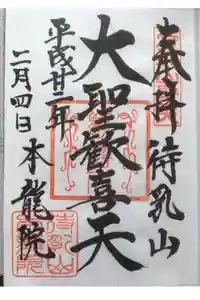 奉拝 待乳山
大聖歓喜天
本龍院
平成廿二年
二月四日